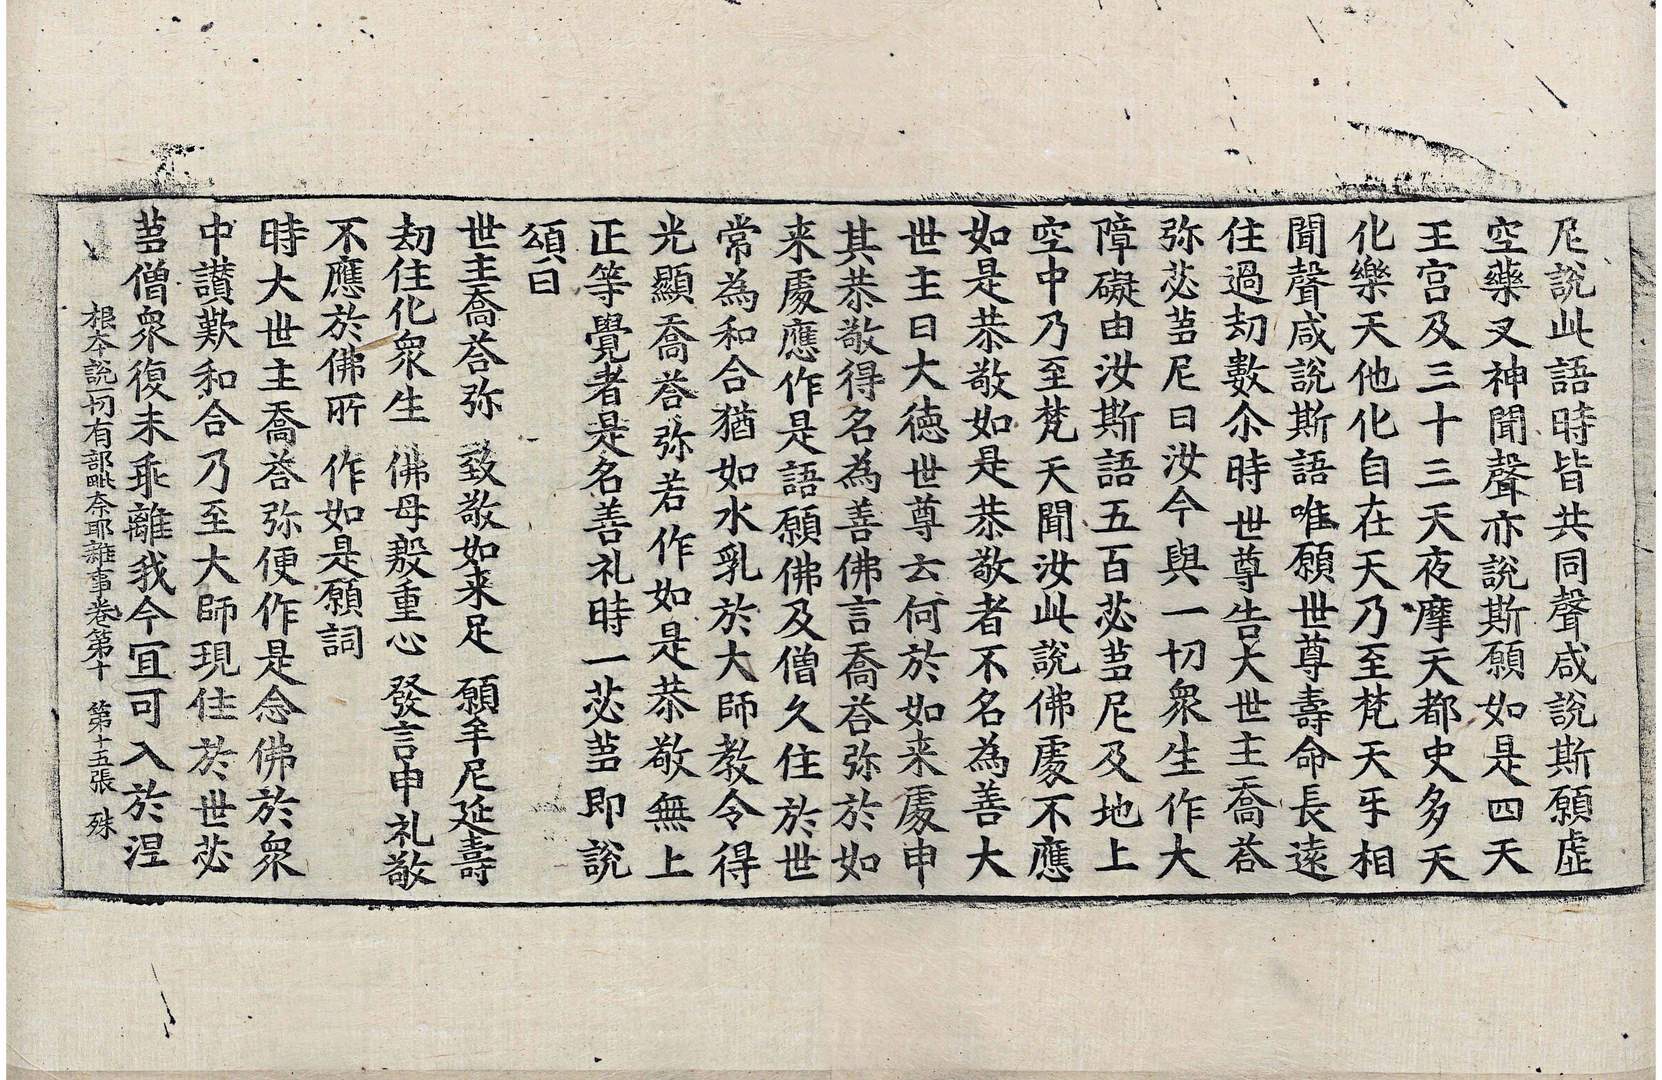 尼說此語時皆共同聲咸說斯願虛
空藥叉神聞聲亦說斯願如是四天
王宮及三十三天夜摩天都史多天
化樂天他化自在天乃至梵天乎相
聞聲咸說斯語唯願世尊壽命長遠
住過劫數尒時世尊告大世主喬荅
弥苾蒭尼曰汝今與一切衆生作大
障礙由汝斯語五百苾蒭尼及地上
空中乃至梵天聞汝此說佛處不應
如是恭敬如是恭敬者不名為善大
世主曰大德世尊云何於如来處申
其恭敬得名為善佛言喬荅弥於如
来處應作是語願佛及僧久住於世
常為和合猶如水乳於大師教令得
光顯喬荅弥若作如是恭敬無上
正等覺者是名善礼時一苾蒭即說
頌曰
世主喬荅弥 致敬如来足 願牟尼延壽
劫住化衆生 佛母慇重心 發言申礼敬
不應於佛所 作如是願詞
時大世主喬荅弥便作是念佛於衆
中讃歎和合乃至大師現住於世苾
蒭僧衆復未乖離我今冝可入於涅
根本說一切有部毗奈耶雜事卷第十 第十五張 殊